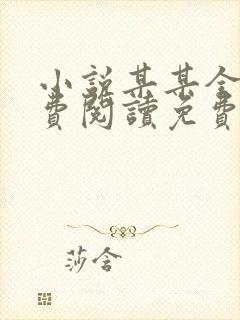 小說某某全
費閱讀免費
莎含